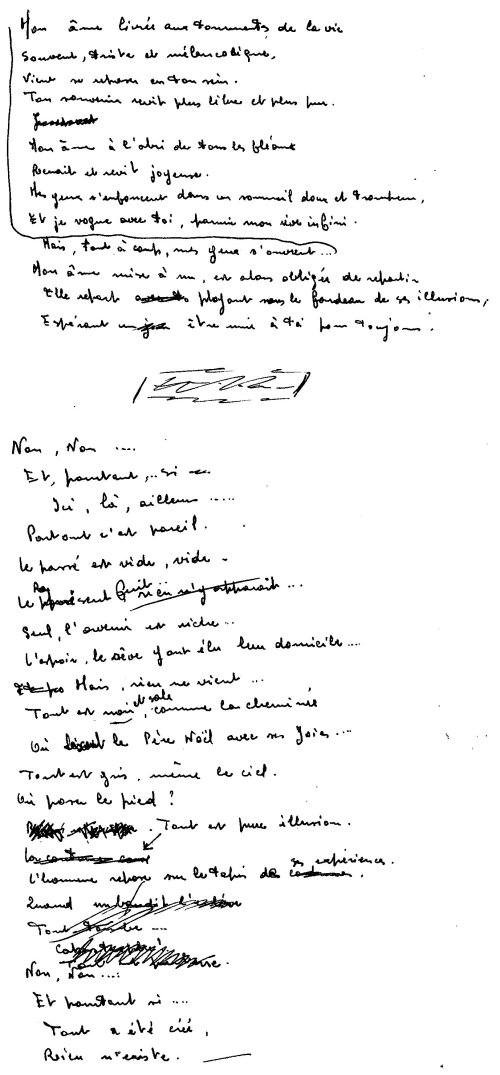 Mon âme livrée aux tourments de la vie
Souvent, triste et mélancolique,
Vient se reposer en ton sein.
Ton souvenir revit plus libre et plus pur.
Mon âme à l'abri de tous les fléaux
Renaît et revit joyeuse.
Mes yeux s'enfoncent dans un sommeil doux et
Et je vogue avec toi, parmi mon rêve infini.
Mais, tout à coup, mes yeux s'ouvrent...
Mon âme mise à nu, est alors obligée de repartir
Elle repart ployant sous le fardeau de ses illusions,
Espérant être unie à toi pour toujours.
Non, Non ....
Et, pourtant, .. si
Ici, là, ailleurs .....
Partout c'est pareil.
Le passé est vide, vide
Le présent rien n'y apparaît ...
Seul, l'avenir est riche ..
L'espoir, le rêve y ont élu leur domicile ....
Mais, rien ne vient ...
Tout est noir et sale, comme la cheminée
Où le Père Noël avec ses joies ...
Tout est gris, même le ciel.
Où poser le pied ?
Tout est pure illusion.
L'homme repose sur le tapis de ses expériences.
Quand un bandit
Tout tombe ...
Non, Non ....
Et pourtant si ....
Tout a été créé,
Rien n'existe.